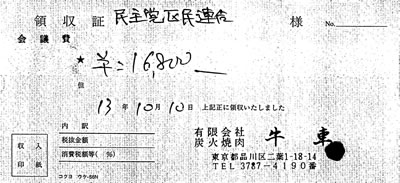 領収証 民主党区民連合 様 No.
会議費
★ ¥=16,800
但
13年10月10日 上記正に領収いたしました
収入印紙
内訳
税抜金額
消費税額等( %)
有限会社 炭火焼肉 牛車
東京都品川区二葉1-18-14
TEL 3787-4190番
コクヨ ウケ-56N